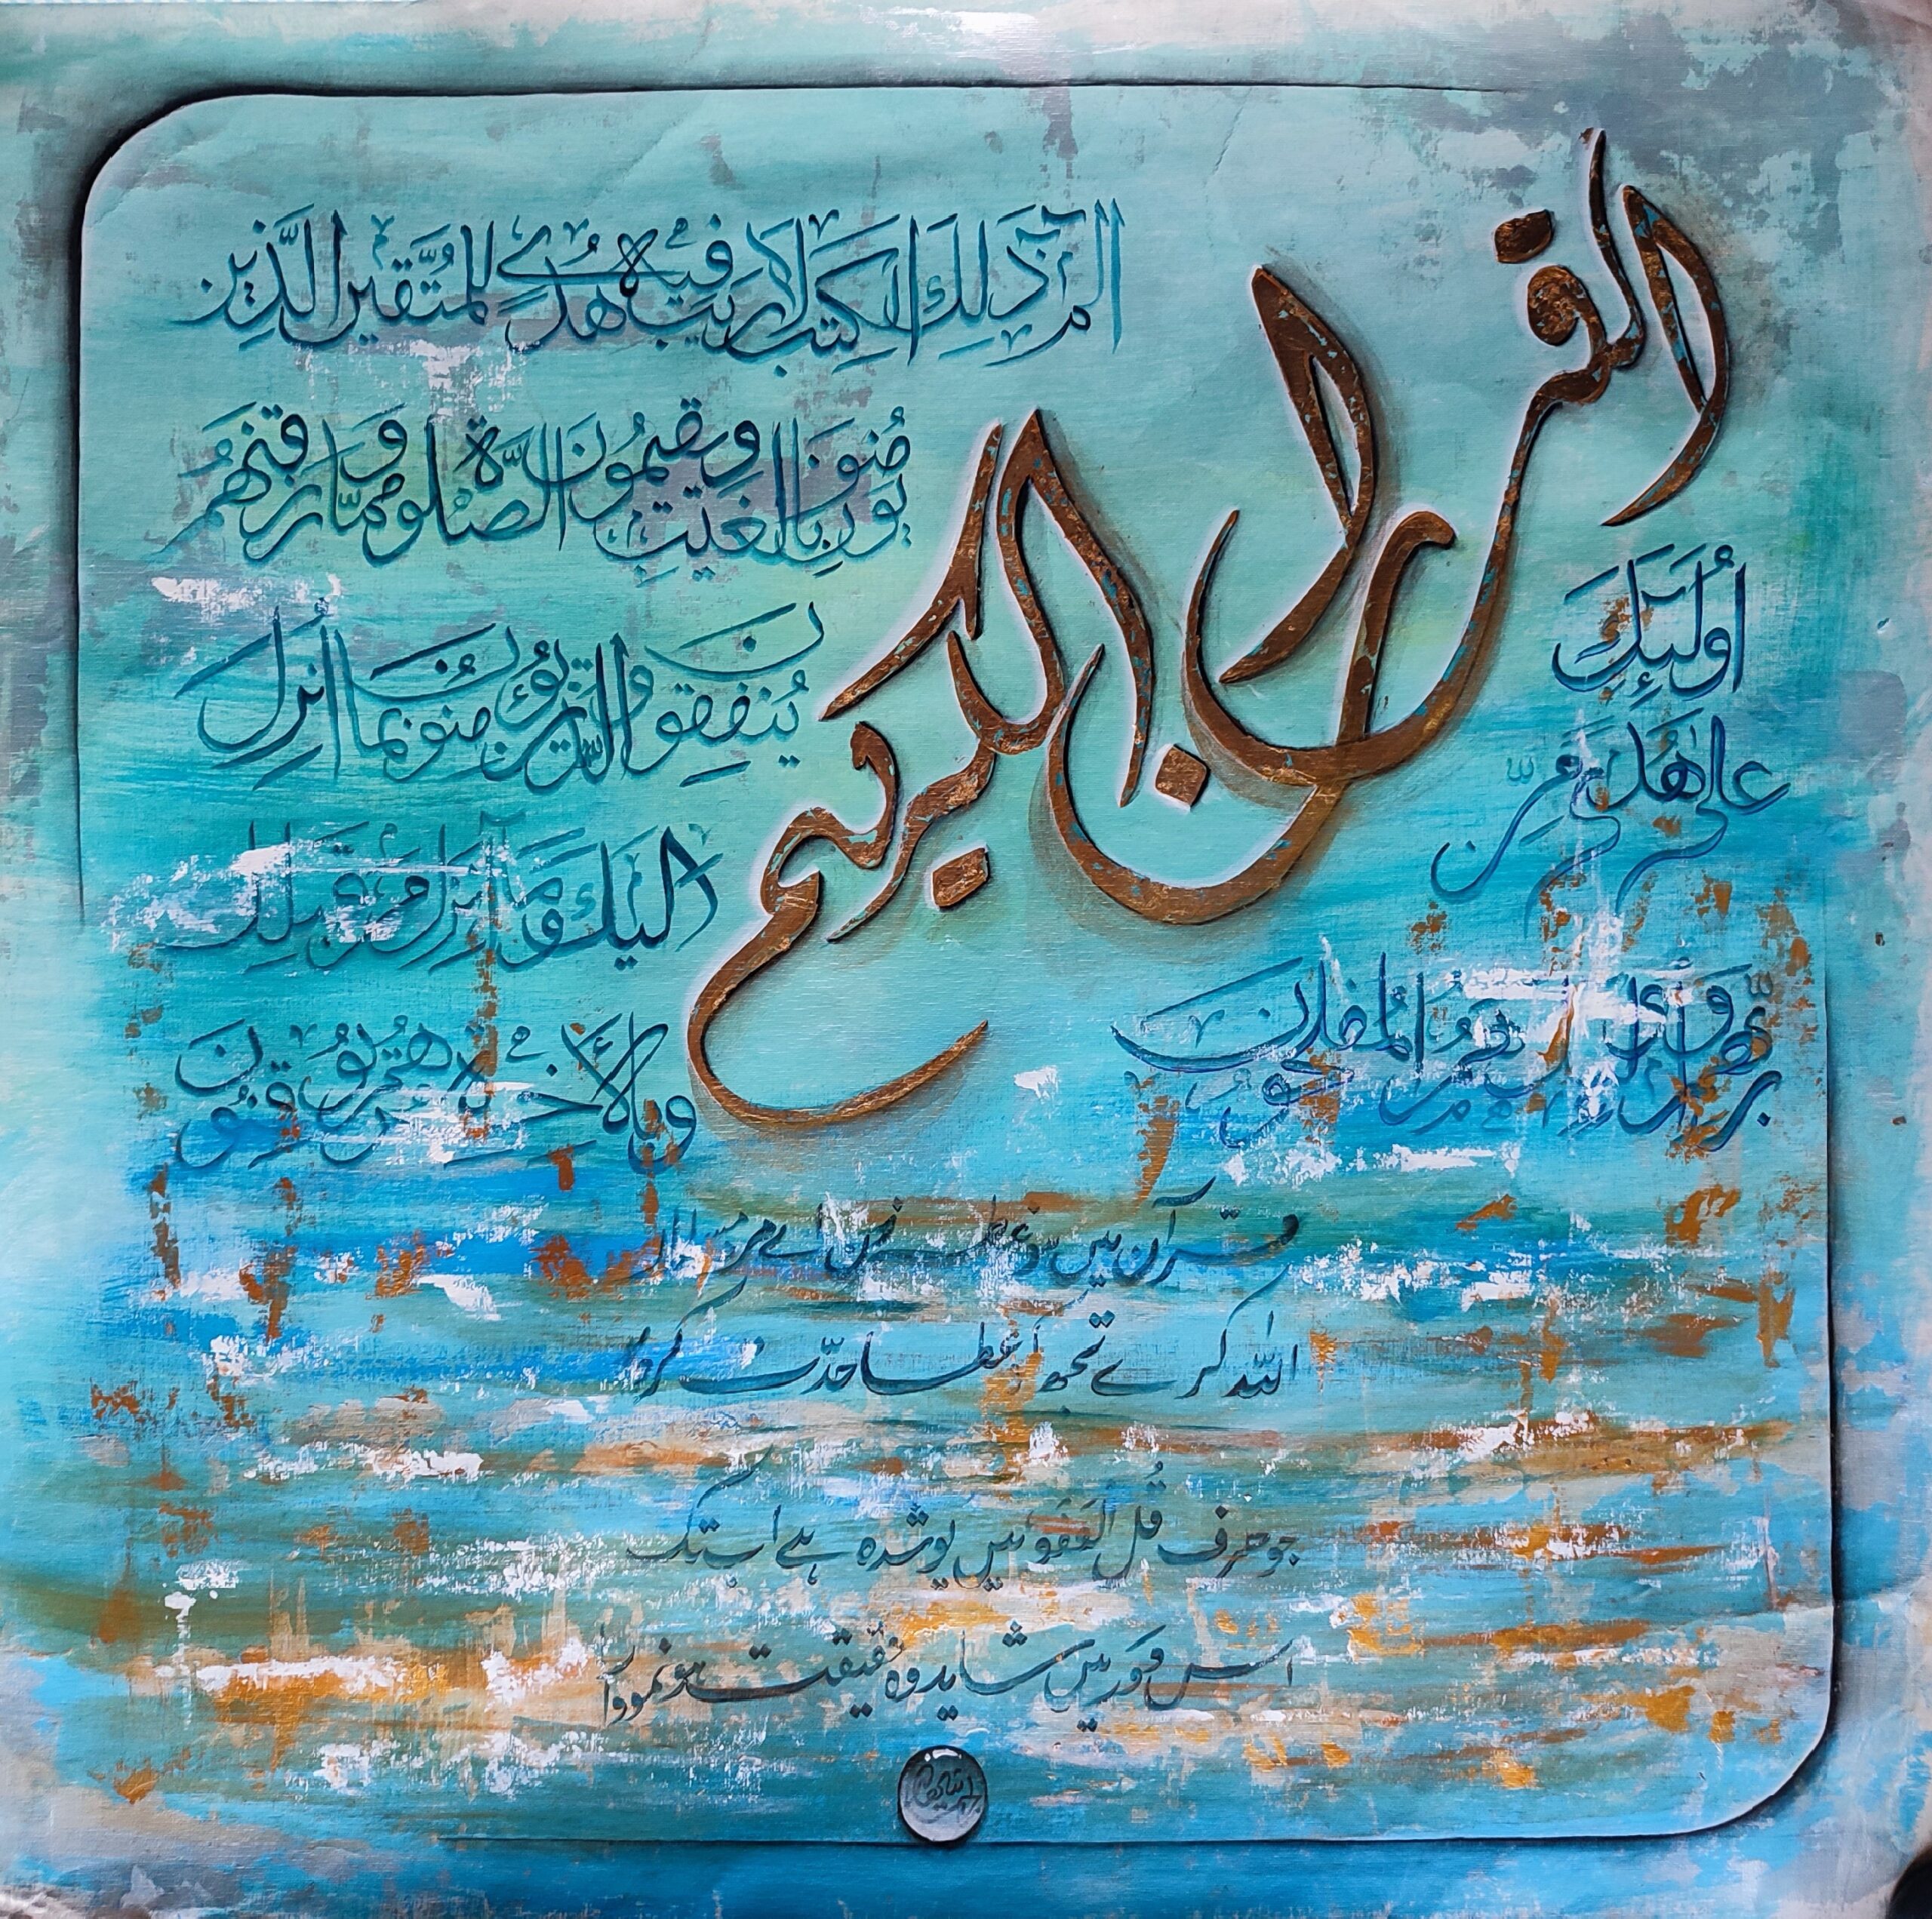 القرآن الكريم
الم ذَلِكَ الْكِتٰبُ لَا رَيْبَ فِيهِ هُدًى لِلْمُتَّقِينَ الَّذِينَ
يُؤْمِنُونَ بِالْغَيْبِ وَيُقِيمُونَ الصَّلٰوةَ وَمِمَّا رَزَقْنٰهُمْ
يُنْفِقُونَ وَالَّذِينَ يُؤْمِنُونَ بِمَا أُنْزِلَ
إِلَيْكَ وَمَا أُنْزِلَ مِنْ قَبْلِكَ
وَبِالْآخِرَةِ هُمْ يُوقِنُونَ
أُولَئِكَ
عَلٰى هُدًى مِّنْ
رَّبِّهِمْ وَأُولَئِكَ هُمُ الْمُفْلِحُونَ
قرآن میں ہو غوطہ زن اے مرد مسلماں
اللہ کرے تجھ کو عطا جدّت کردار
جو حرف قُل العَفو میں پوشیدہ ہے اب تک
اس دَور میں شاید وہ حقیقت ہو نمودار